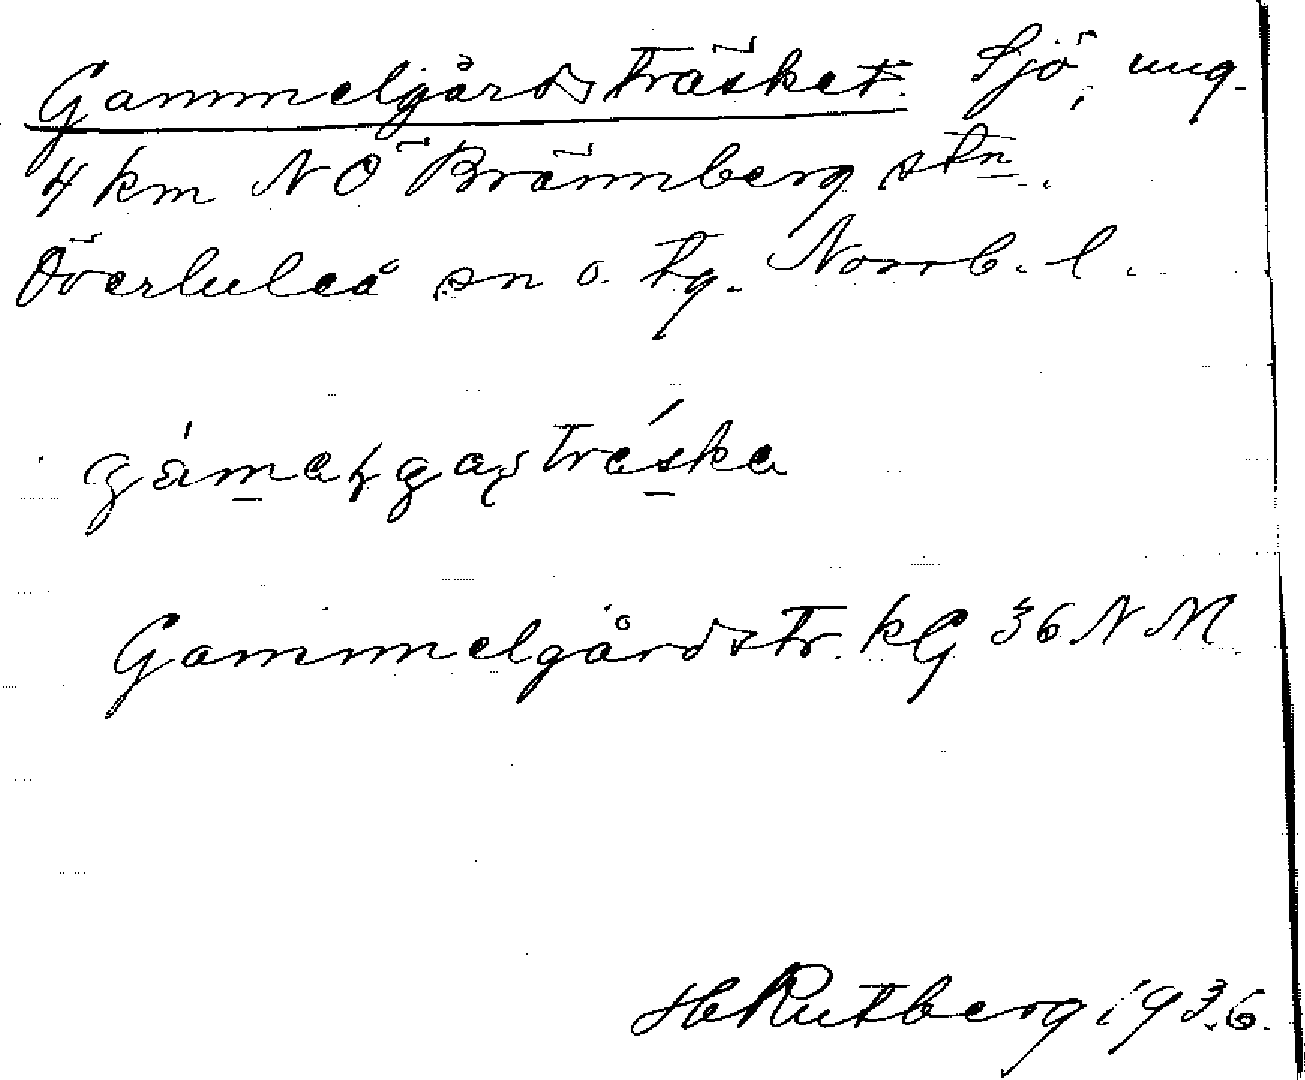 Gammelgårdsträsket. Sjö, ung.
4 km NÖ Brännberg stn.
Överluleå sn o. tg. Norrb. l.
Gammelgårdstr. kG 36 NM
H Rutberg 1936.